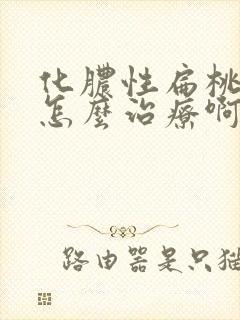 化膿性扁桃
怎麼治療啊
路由器是只猫